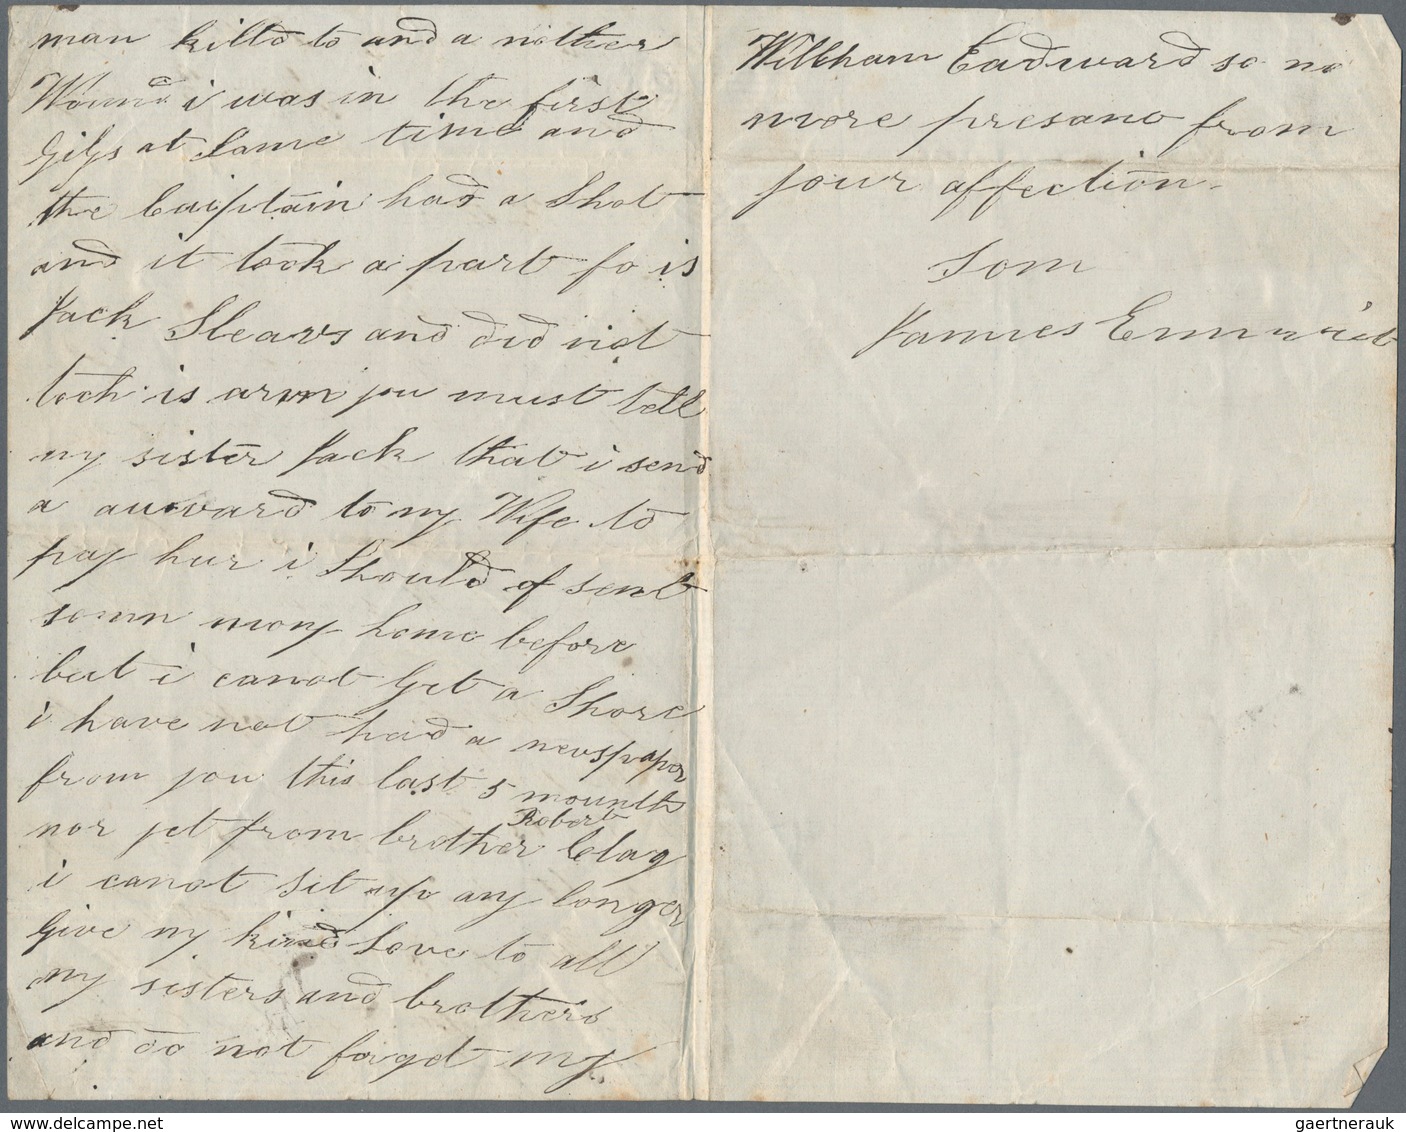 man killd to and a nother
Wound i was in the first
Gigs at same time and
the Caiptain had a Shot
and it took a part fo is
Jack Sleavs and did not
toch is arm you must tell
my sister Jack that i send
a auward to my Wife to
pay hur i Should of sent
somn mony home before
but i canot Get a Shore
i have not had a newspaper
from you this last 5 mounths
nor yet from brother Robert Clag
i canot sit up any longer
Give my kind Love to all
my sisters and brothers
and do not forget my
Willham Eadward so no
more presano from
your affection
Son
James
www.delcampe.net
gaertnerauk